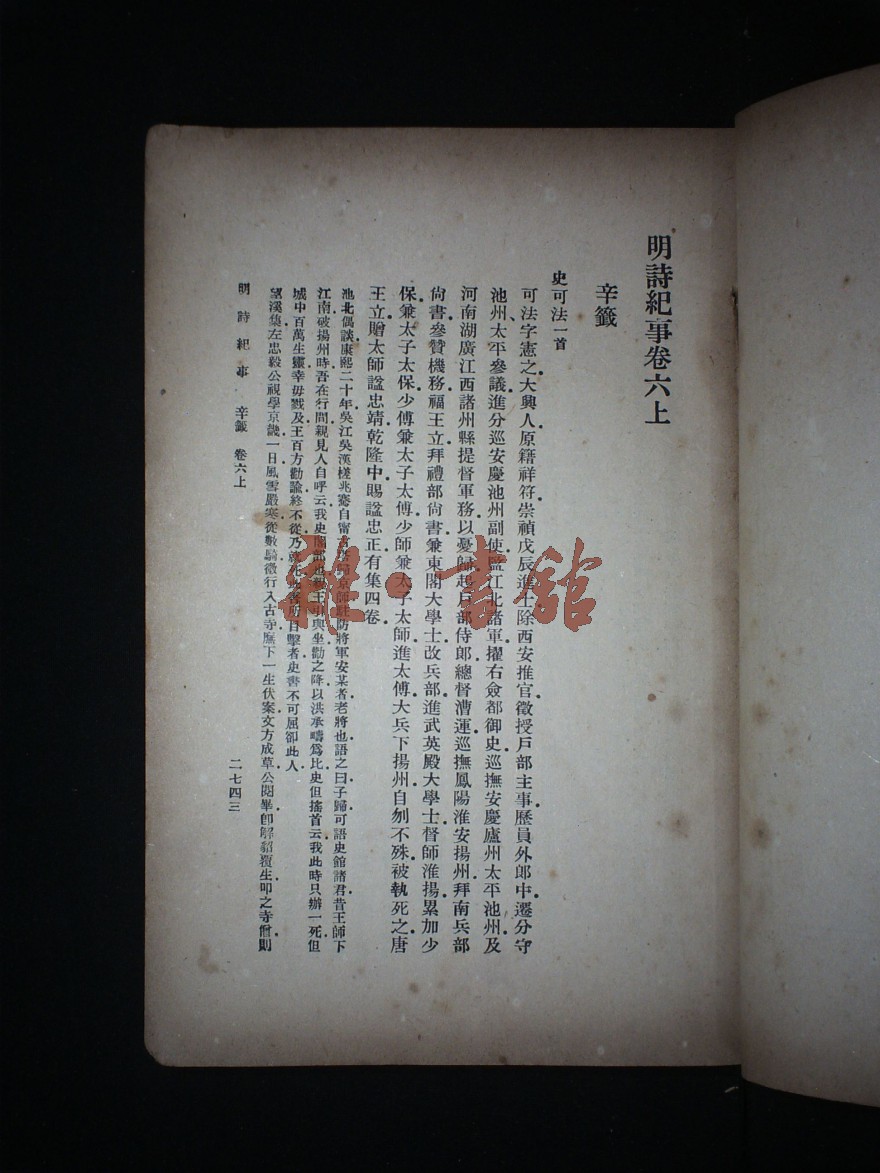 明詩紀事卷六上
辛籤
史可法一首
可法字憲之大興人原籍祥符崇禎戊辰進士除西安推官徵授戶部主事歷員外郎中遷分守
池州太平參議進分巡安慶池州副使監江北諸軍擢右僉都御史巡撫安慶廬州太平池州及
河南湖廣江西諸州縣提督軍務以憂歸起戶部侍郎總督漕運巡撫鳳陽淮安揚州拜南兵部
尚書參贊機務福王立拜禮部尚書兼東閣大學士改兵部進武英殿大學士督師淮揚累加少
保兼太子太保少傅兼太子太傅少師兼太子太師進太傅大兵下揚州自刎不殊被執死之唐
王立贈太師諡忠靖乾隆中賜諡忠正有集四卷
池北偶談康熙二十年吳江吳漢槎兆騫自甯古塔歸京師駐防將軍安某者老將也語之曰子歸可語史館諸君昔王師下
江南破揚州時吾在行間親見人自呼云我史閣部也親王引與坐勸之降以洪承疇為比史但搖首云我此時只辦一死但
城中百萬生靈幸毋戮及王百方勸諭終不從乃就死此吾所目擊者史書不可屈卻此人
望溪集左忠毅公視學京畿一日風雪嚴寒從數騎微行入古寺廡下一生伏案文方成草公閱畢卽解貂覆生叩之寺僧則
明詩紀事 辛籤 卷六上
二七四三
雜·書館